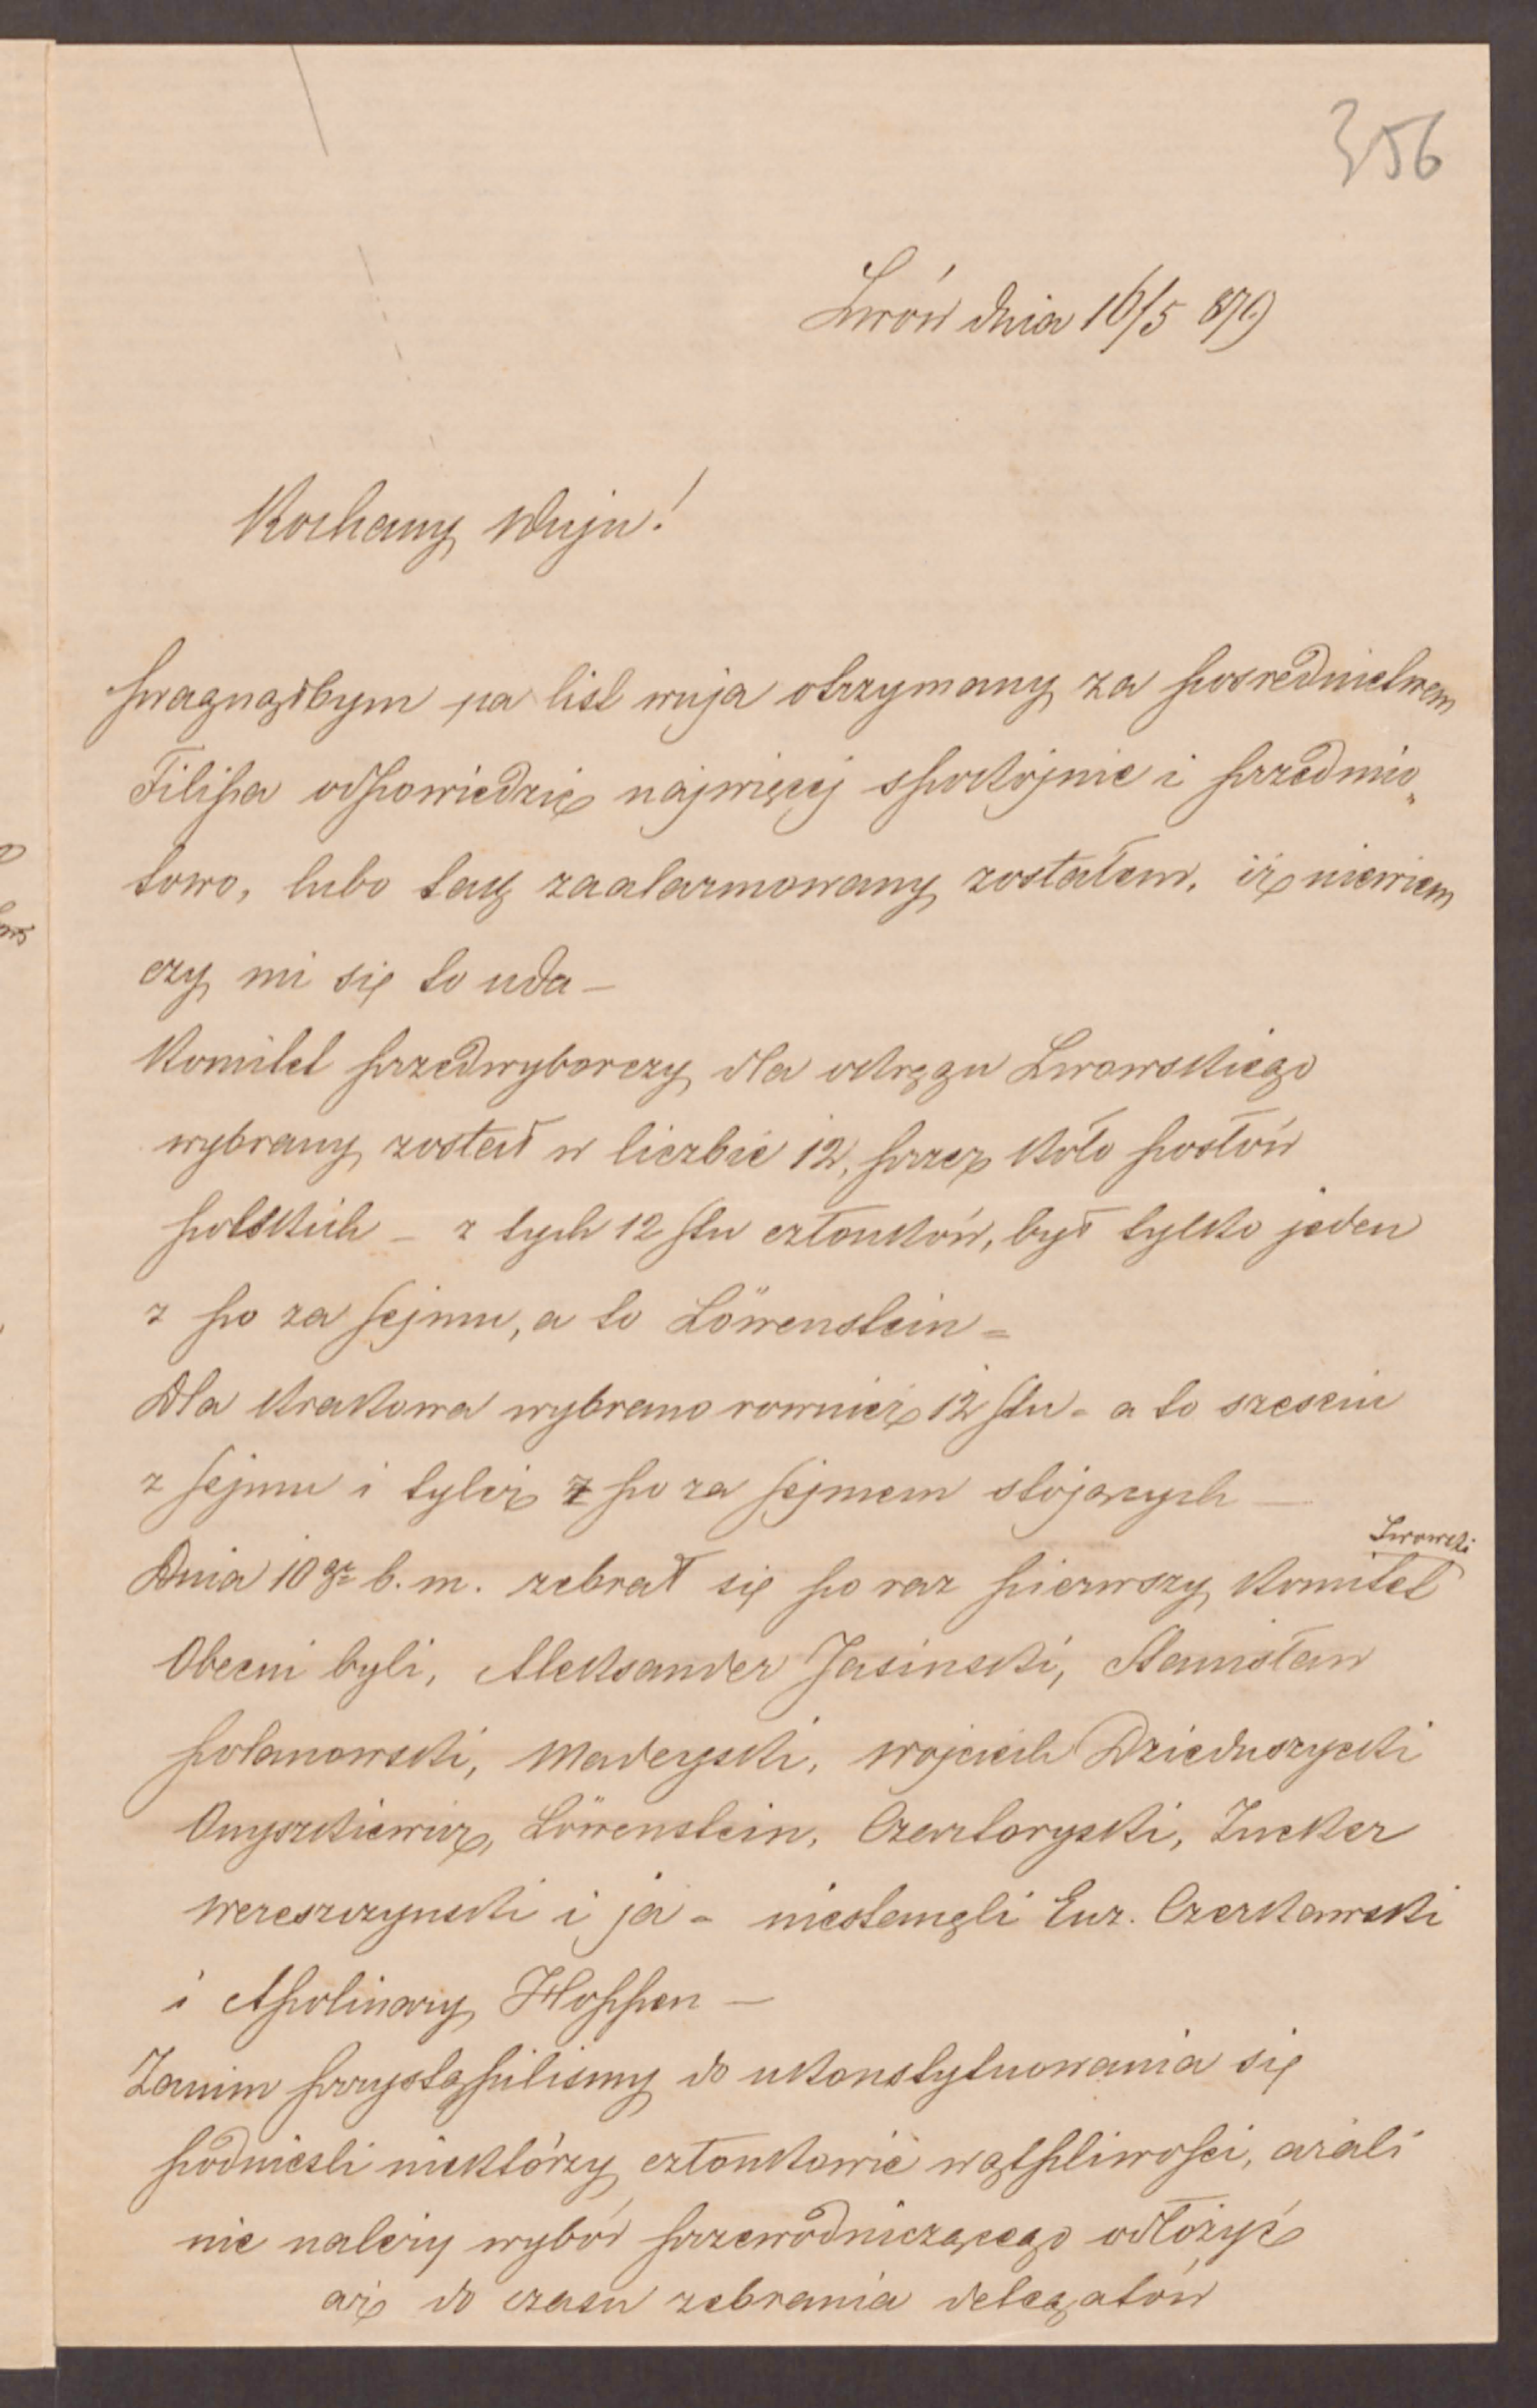 356
Lwów dnia 16/5 879
Kochany Wuju!
pragnąłbym na list wuja otrzymany za posrednictwem
Filipa odpowiedzić najwięcej spokojnie i przedmio„
towo, lubo tak zaalarmowany zostałem, iż niewiem
czy mi się to uda —
Komitet przedwyborczy dla okręgu Lwowskiego
wybrany został w liczbie 12, przez koło posłów
polskich — z tych 12stu członków, był tylko jeden
z po za sejmu, a to Löwenstein =
Dla Krakowa wybrano rownież 12stu - a to szesciu
z sejmu i tyleż z po za sejmem stojących —
Lwowski
Dnia 10go b. m. zebrał się po raz pierwszy komitet
Obecni byli, Aleksander Jasinski, Stanisław
Polanowski, Madeyski, Wojciech Dzieduszycki
Onyszkiewicz, Löwenstein, Czartoryski, Zucker
Wereszczynski i ja - niestanęli Euz. Czerkawski
i Apolinary Hoppen —
Zanim przystąpilismy do ukonstytuowania się
podniesli niektórzy członkowie wątpliwości, azali
nie należy wybór przewodniczącego odłożyć
aż do czasu zebrania delegatów